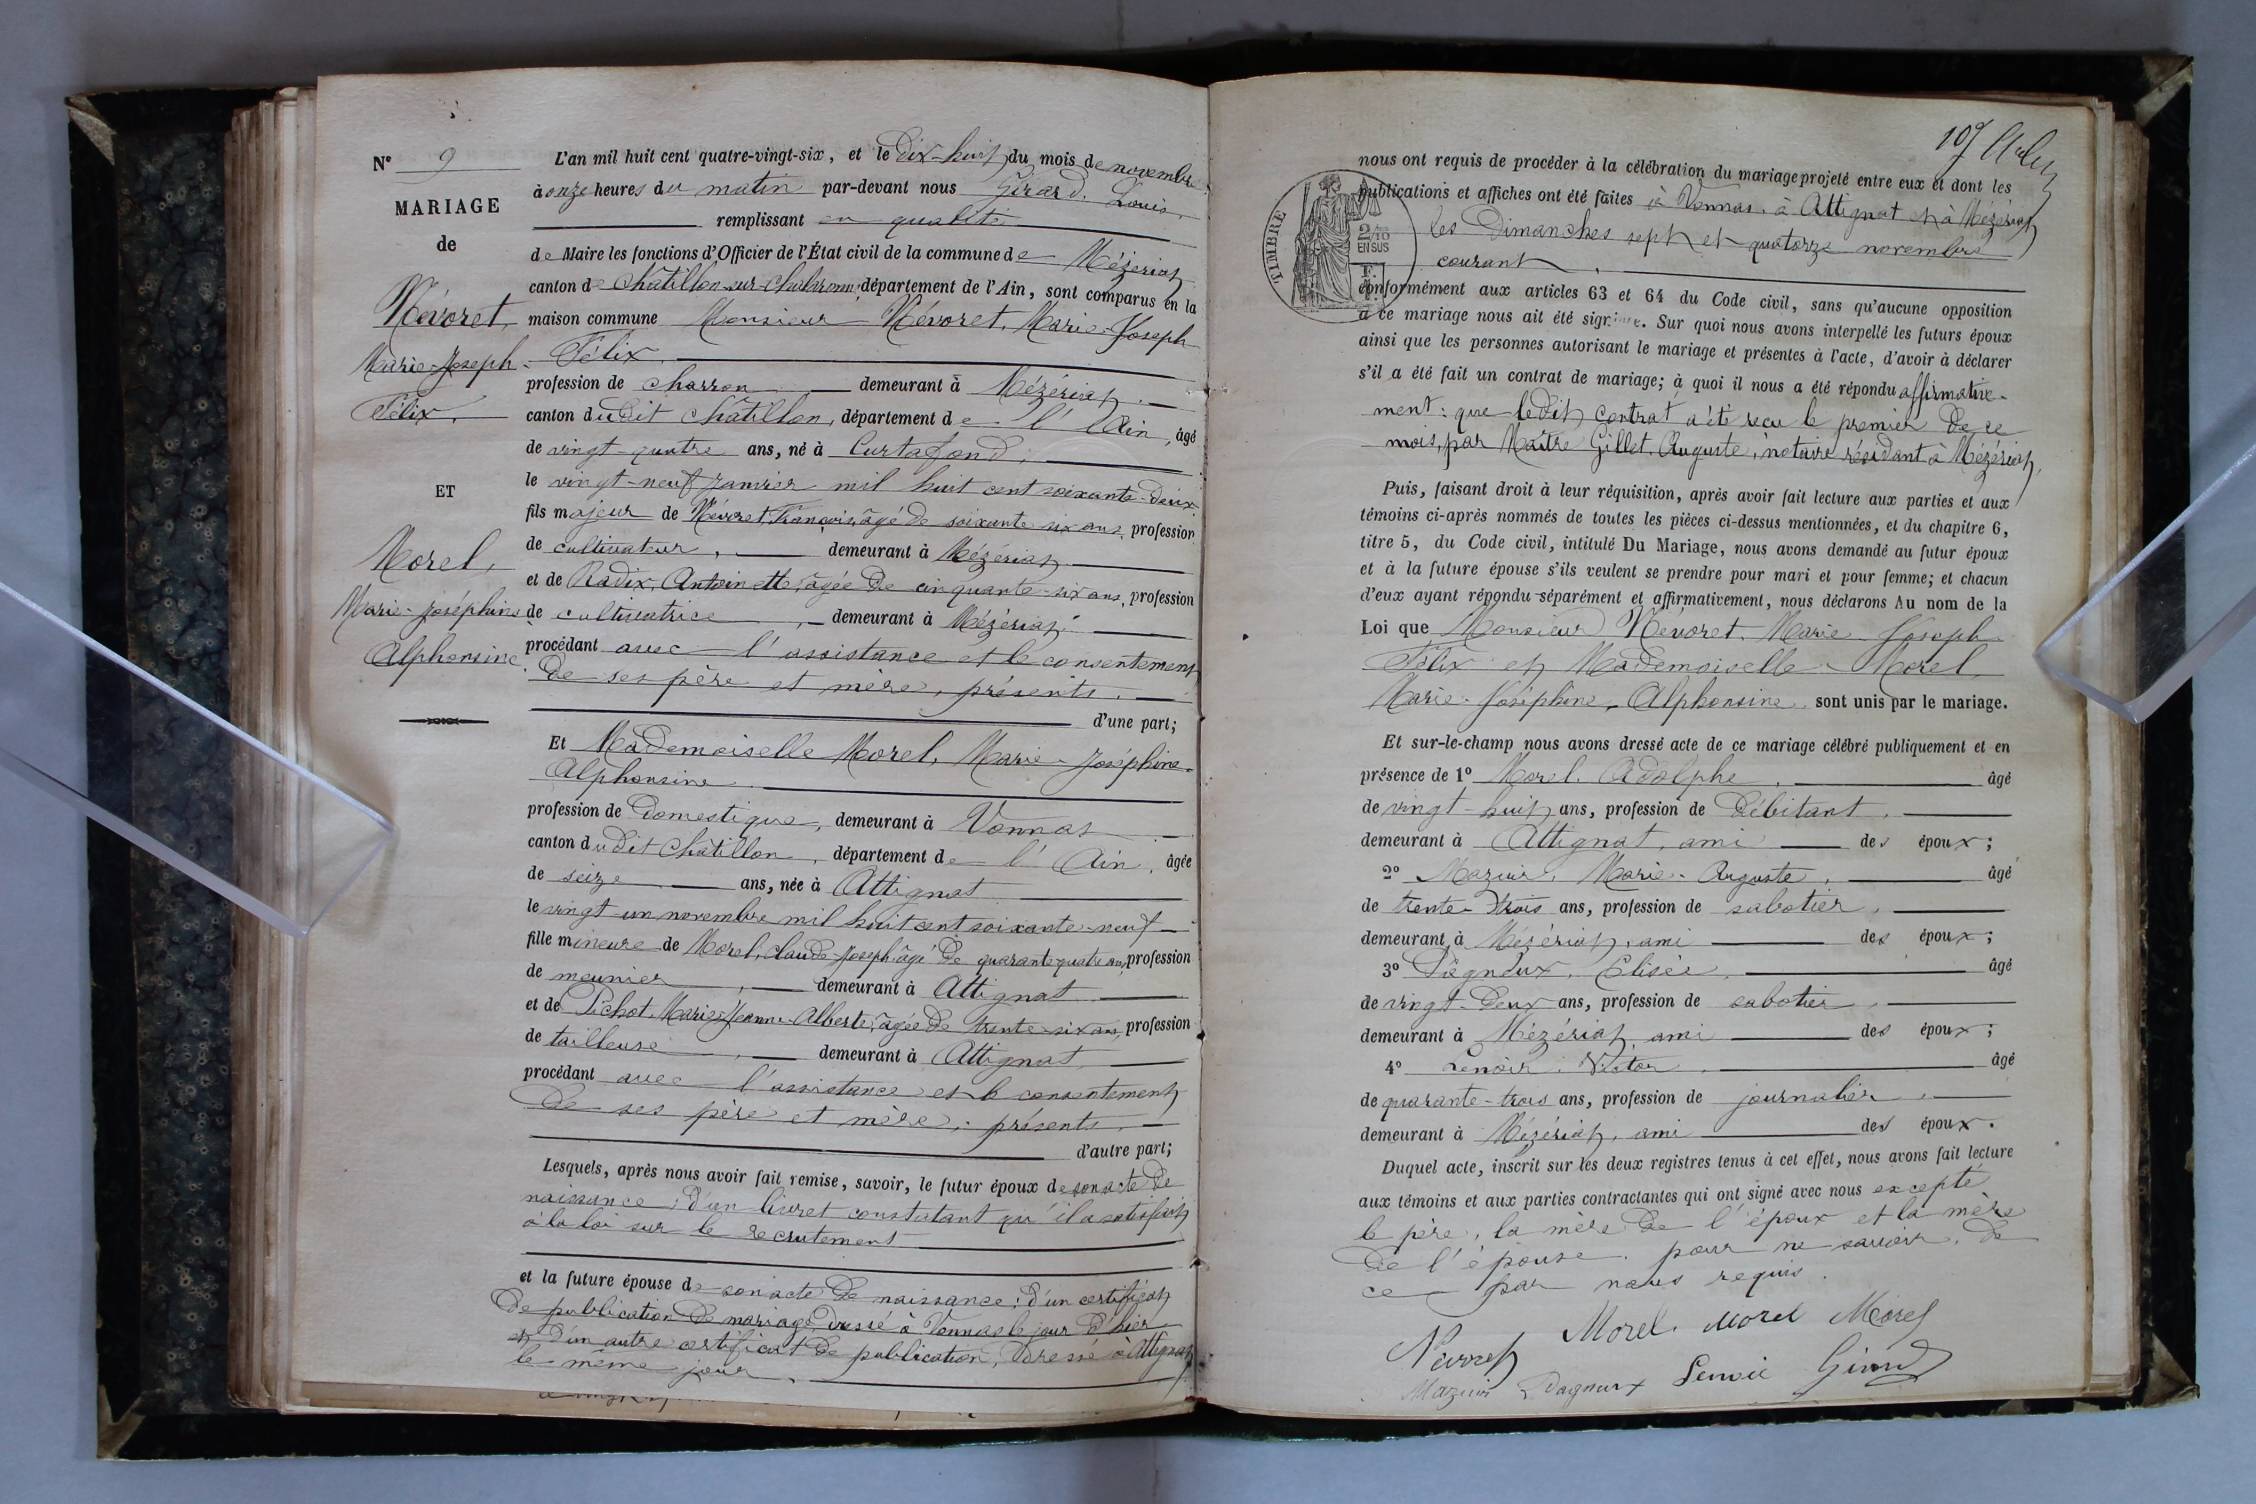 N° 9
MARIAGE
de
Névoret,
Marie-Joseph
Félix,
ET
Morel,
Marie-Joséphine
Alphonsine.
L'an mil huit cent quatre-vingt-six, et le dix-huit du mois de novembre
à onze heures du matin par-devant nous Girard, Louis,
remplissant en qualité
de Maire les fonctions d'Officier de l'État civil de la commune de Mézériat
canton de Châtillon-sur-Chalaronne, département de l'Ain, sont comparus en la
maison commune Monsieur Névoret, Marie-Joseph
Félix
profession de charron demeurant à Mézériat,
canton dudit Châtillon, département de l'Ain, âgé
de vingt-quatre ans, né à Curtafond,
le vingt-neuf janvier mil huit cent soixante-deux
fils majeur de Névoret, François, âgé de soixante six ans, profession
de cultivateur, demeurant à Mézériat
et de Radix, Antoinette, âgée de cinquante-six ans, profession
de cultivatrice, demeurant à Mézériat
procédant avec l'assistance et le consentement
de ses père et mère, présents.
d'une part;
Et Mademoiselle Morel, Marie-Joséphine-
Alphonsine
profession de domestique, demeurant à Vonnas
canton dudit Châtillon, département de l'Ain, âgée
de seize ans, née à Attignat
le vingt-un novembre mil huit cent soixante-neuf
fille mineure de Morel, Claude-Joseph âgé de quarante quatre ans, profession
de meunier, demeurant à Attignat
et de Pichot, Marie-Jeanne-Alberte, âgée de trente-six ans, profession
de tailleuse, demeurant à Attignat
procédant avec l'assistance et le consentement
de ses père et mère, présents.
d'autre part;
Lesquels, après nous avoir fait remise, savoir, le futur époux de son acte de
naissance; d'un livret constatant qu'il a satisfait
à la loi sur le recrutement
et la future épouse de son acte de naissance; d'un certificat
de publication de mariage, dressé à Vonnas le jour d'hier
et d'un autre certificat de publication, dressé à Attignat
le même jour.
107
nous ont requis de procéder à la célébration du mariage projeté entre eux et dont les
publications et affiches ont été faites à Vonnas, à Attignat et à Mézériat
les Dimanches sept et quatorze novembre
courant,
TIMBRE
2/10
EN SUS
conformément aux articles 63 et 64 du Code civil, sans qu'aucune opposition
à ce mariage nous ait été signifiée. Sur quoi nous avons interpellé les futurs époux
ainsi que les personnes autorisant le mariage et présentes à l'acte, d'avoir à déclarer
s'il a été fait un contrat de mariage; à quoi il nous a été répondu affirmative-
ment: que ledit contrat a été reçu le premier de ce
mois, par Maître Gillet, Auguste, notaire résidant à Mézériat,
Puis, faisant droit à leur réquisition, après avoir fait lecture aux parties et aux
témoins ci-après nommés de toutes les pièces ci-dessus mentionnées, et du chapitre 6,
titre 5, du Code civil, intitulé Du Mariage, nous avons demandé au futur époux
et à la future épouse s'ils veulent se prendre pour mari et pour femme; et chacun
d'eux ayant répondu séparément et affirmativement, nous déclarons Au nom de la
Loi que Monsieur Névoret, Marie-Joseph
Félix et Mademoiselle Morel,
Marie-Joséphine-Alphonsine sont unis par le mariage.
Et sur-le-champ nous avons dressé acte de ce mariage célébré publiquement et en
présence de 1° Morel, Adolphe, âgé
de vingt-huit ans, profession de débitant,
demeurant à Attignat, ami des époux;
2° Mazuir, Marie-Auguste, âgé
de trente-trois ans, profession de sabotier,
demeurant à Mézériat, ami des époux;
3° Élisée, âgé
de vingt-deux ans, profession de sabotier,
demeurant à Mézériat, ami des époux;
4° Lenoir, Victor, âgé
de quarante-trois ans, profession de journalier,
demeurant à Mézériat, ami des époux.
Duquel acte, inscrit sur les deux registres tenus à cet effet, nous avons fait lecture
aux témoins et aux parties contractantes qui ont signé avec nous excepté
le père, la mère de l'époux et la mère
de l'épouse, pour ne savoir, de
ce par nous requis.
Névoret Morel Morel Morel
Mazuir Dagneux Lenoir Girard